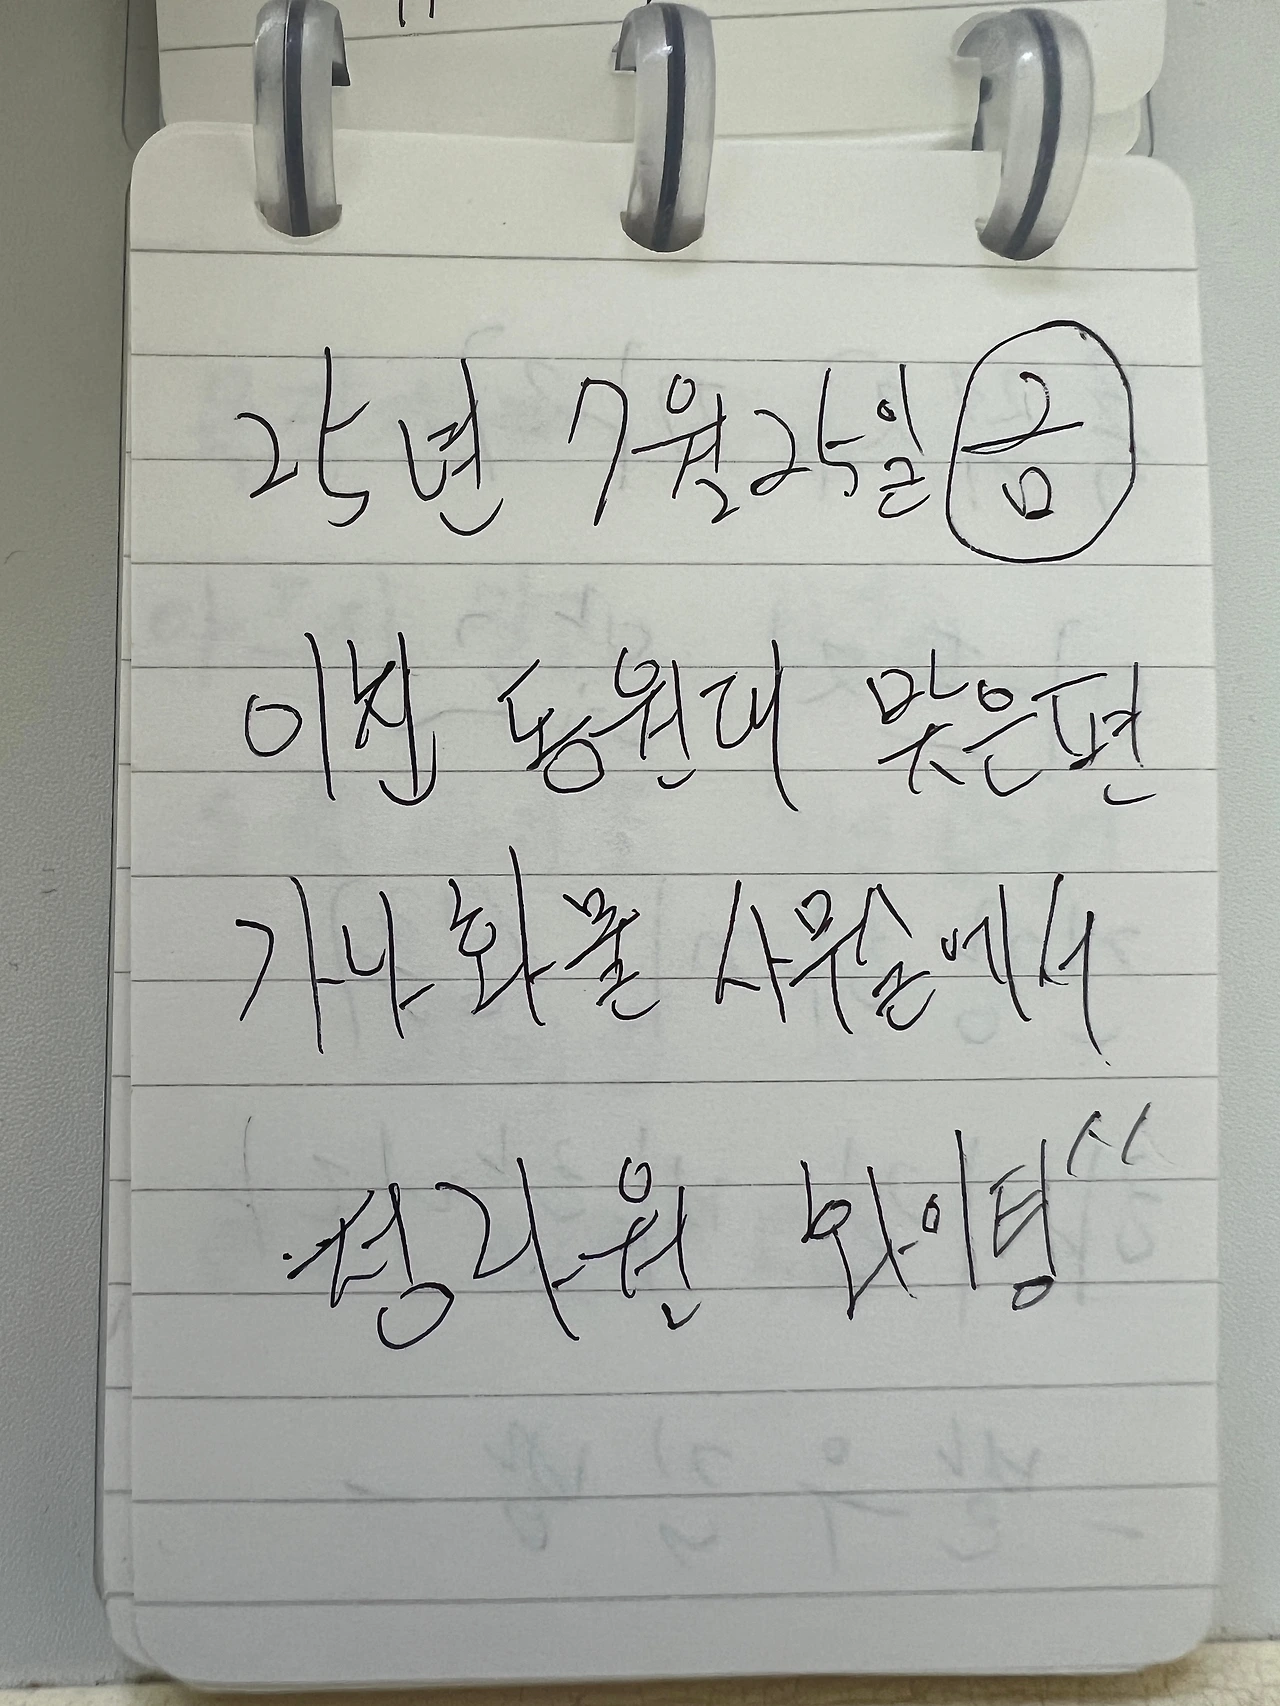 25년 7월25일 금
이천 동원대 맞은편
가나화물 사무실에서
청라원 화이팅"